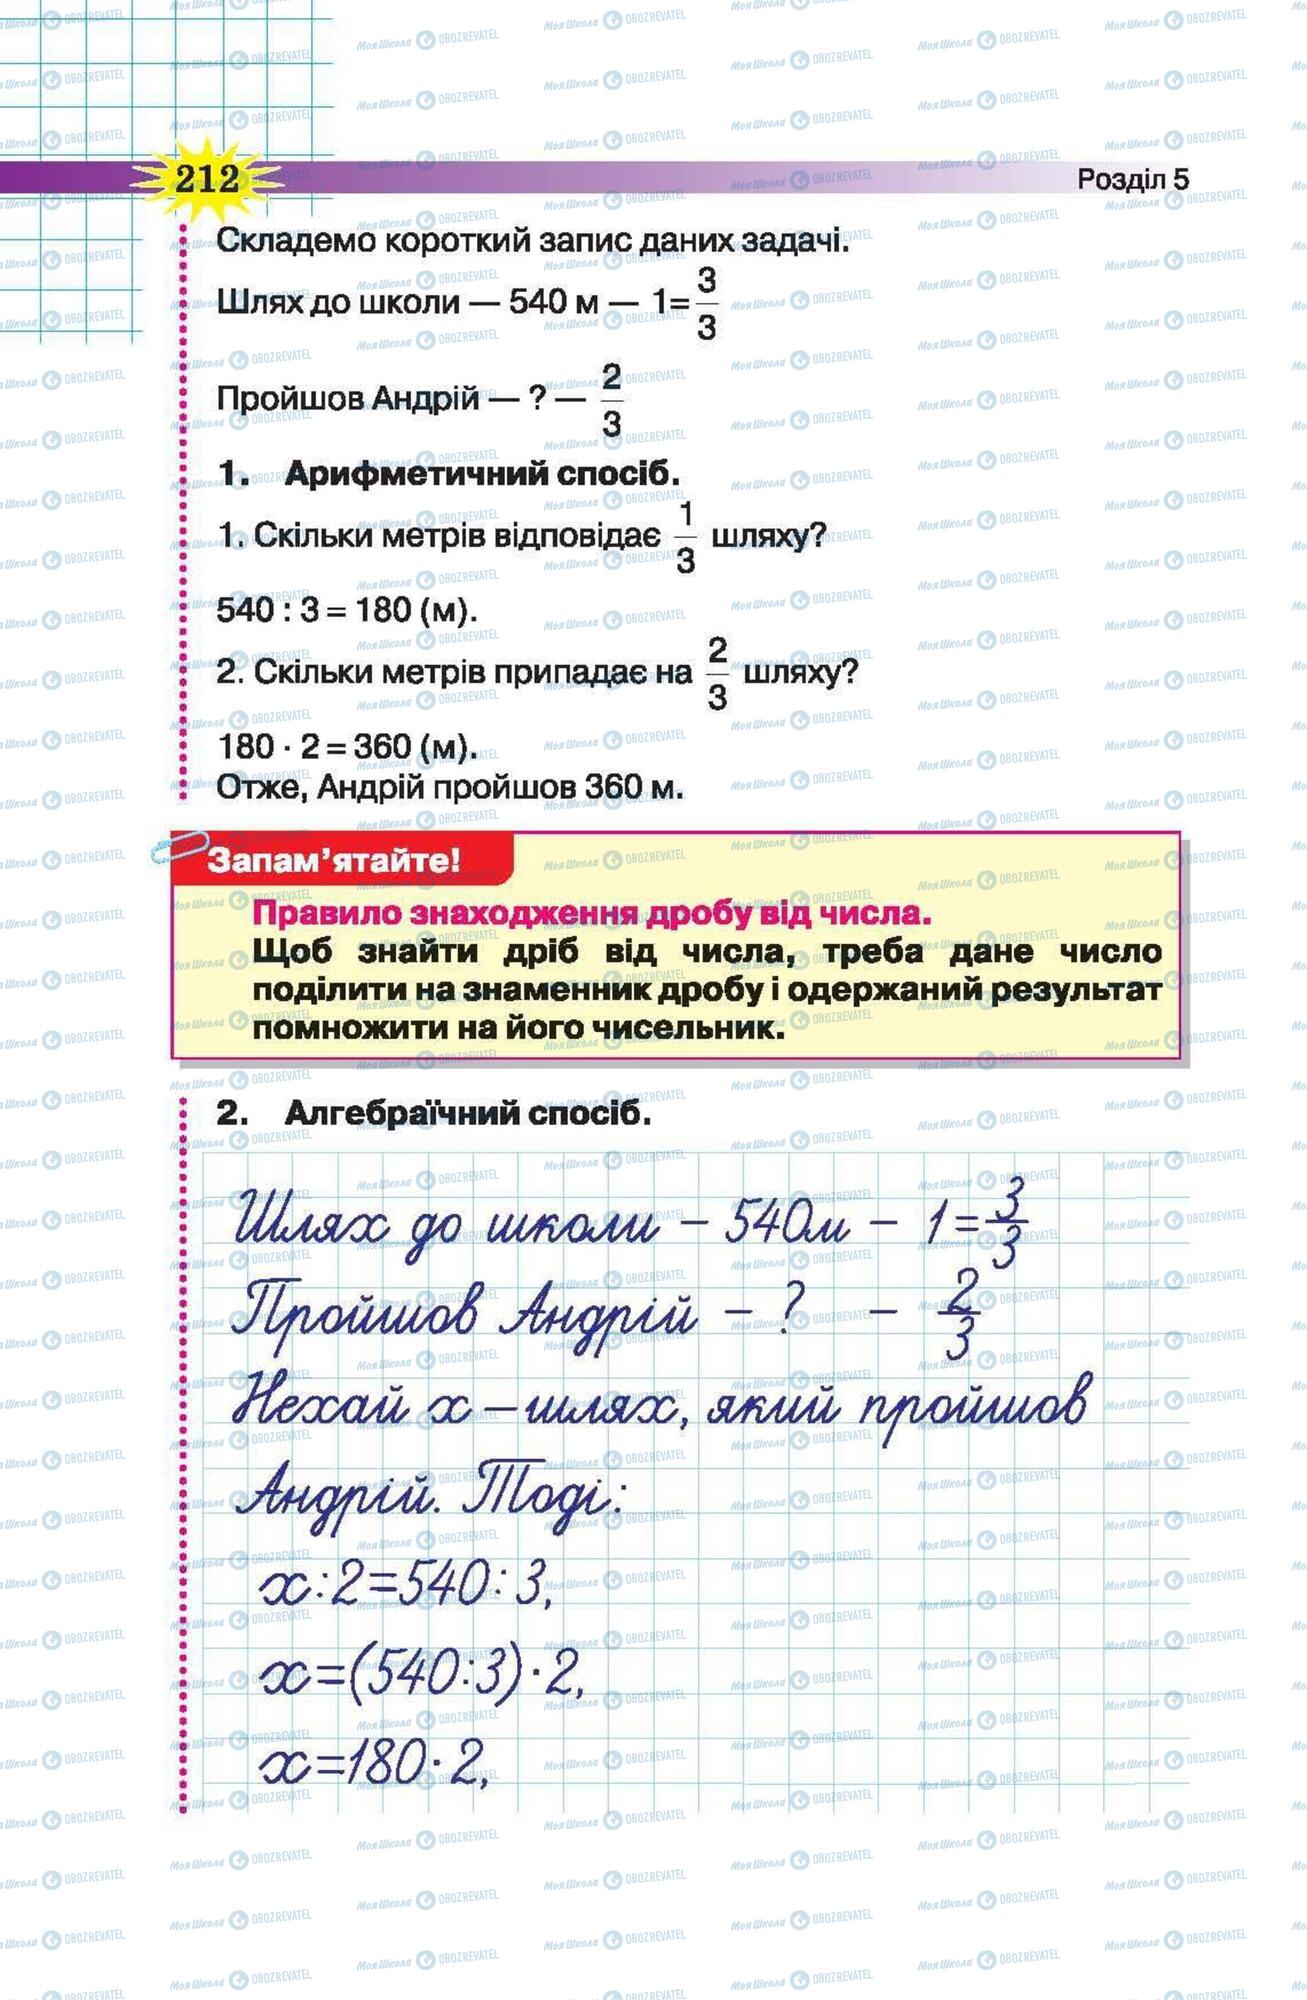 212
Розділ 5
Складемо короткий запис даних задачі.
Шлях до школи — 540 м — 1= 3/3
Пройшов Андрій — ? — 2/3
1. Арифметичний спосіб.
1. Скільки метрів відповідає 1/3 шляху?
540 : 3 = 180 (м).
2. Скільки метрів припадає на 2/3 шляху?
180 · 2 = 360 (м).
Отже, Андрій пройшов 360 м.
Запам’ятайте!
Правило знаходження дробу від числа.
Щоб знайти дріб від числа, треба дане число
поділити на знаменник дробу і одержаний результат
помножити на його чисельник.
2. Алгебраїчний спосіб.
Шлях до школи – 540м – 1= 3/3
Пройшов Андрій – ? – 2/3
Нехай х – шлях, який пройшов
Андрій. Тоді:
х:2=540:3,
х=(540:3)·2,
х=180·2,
МояШкола OBOZREVATEL